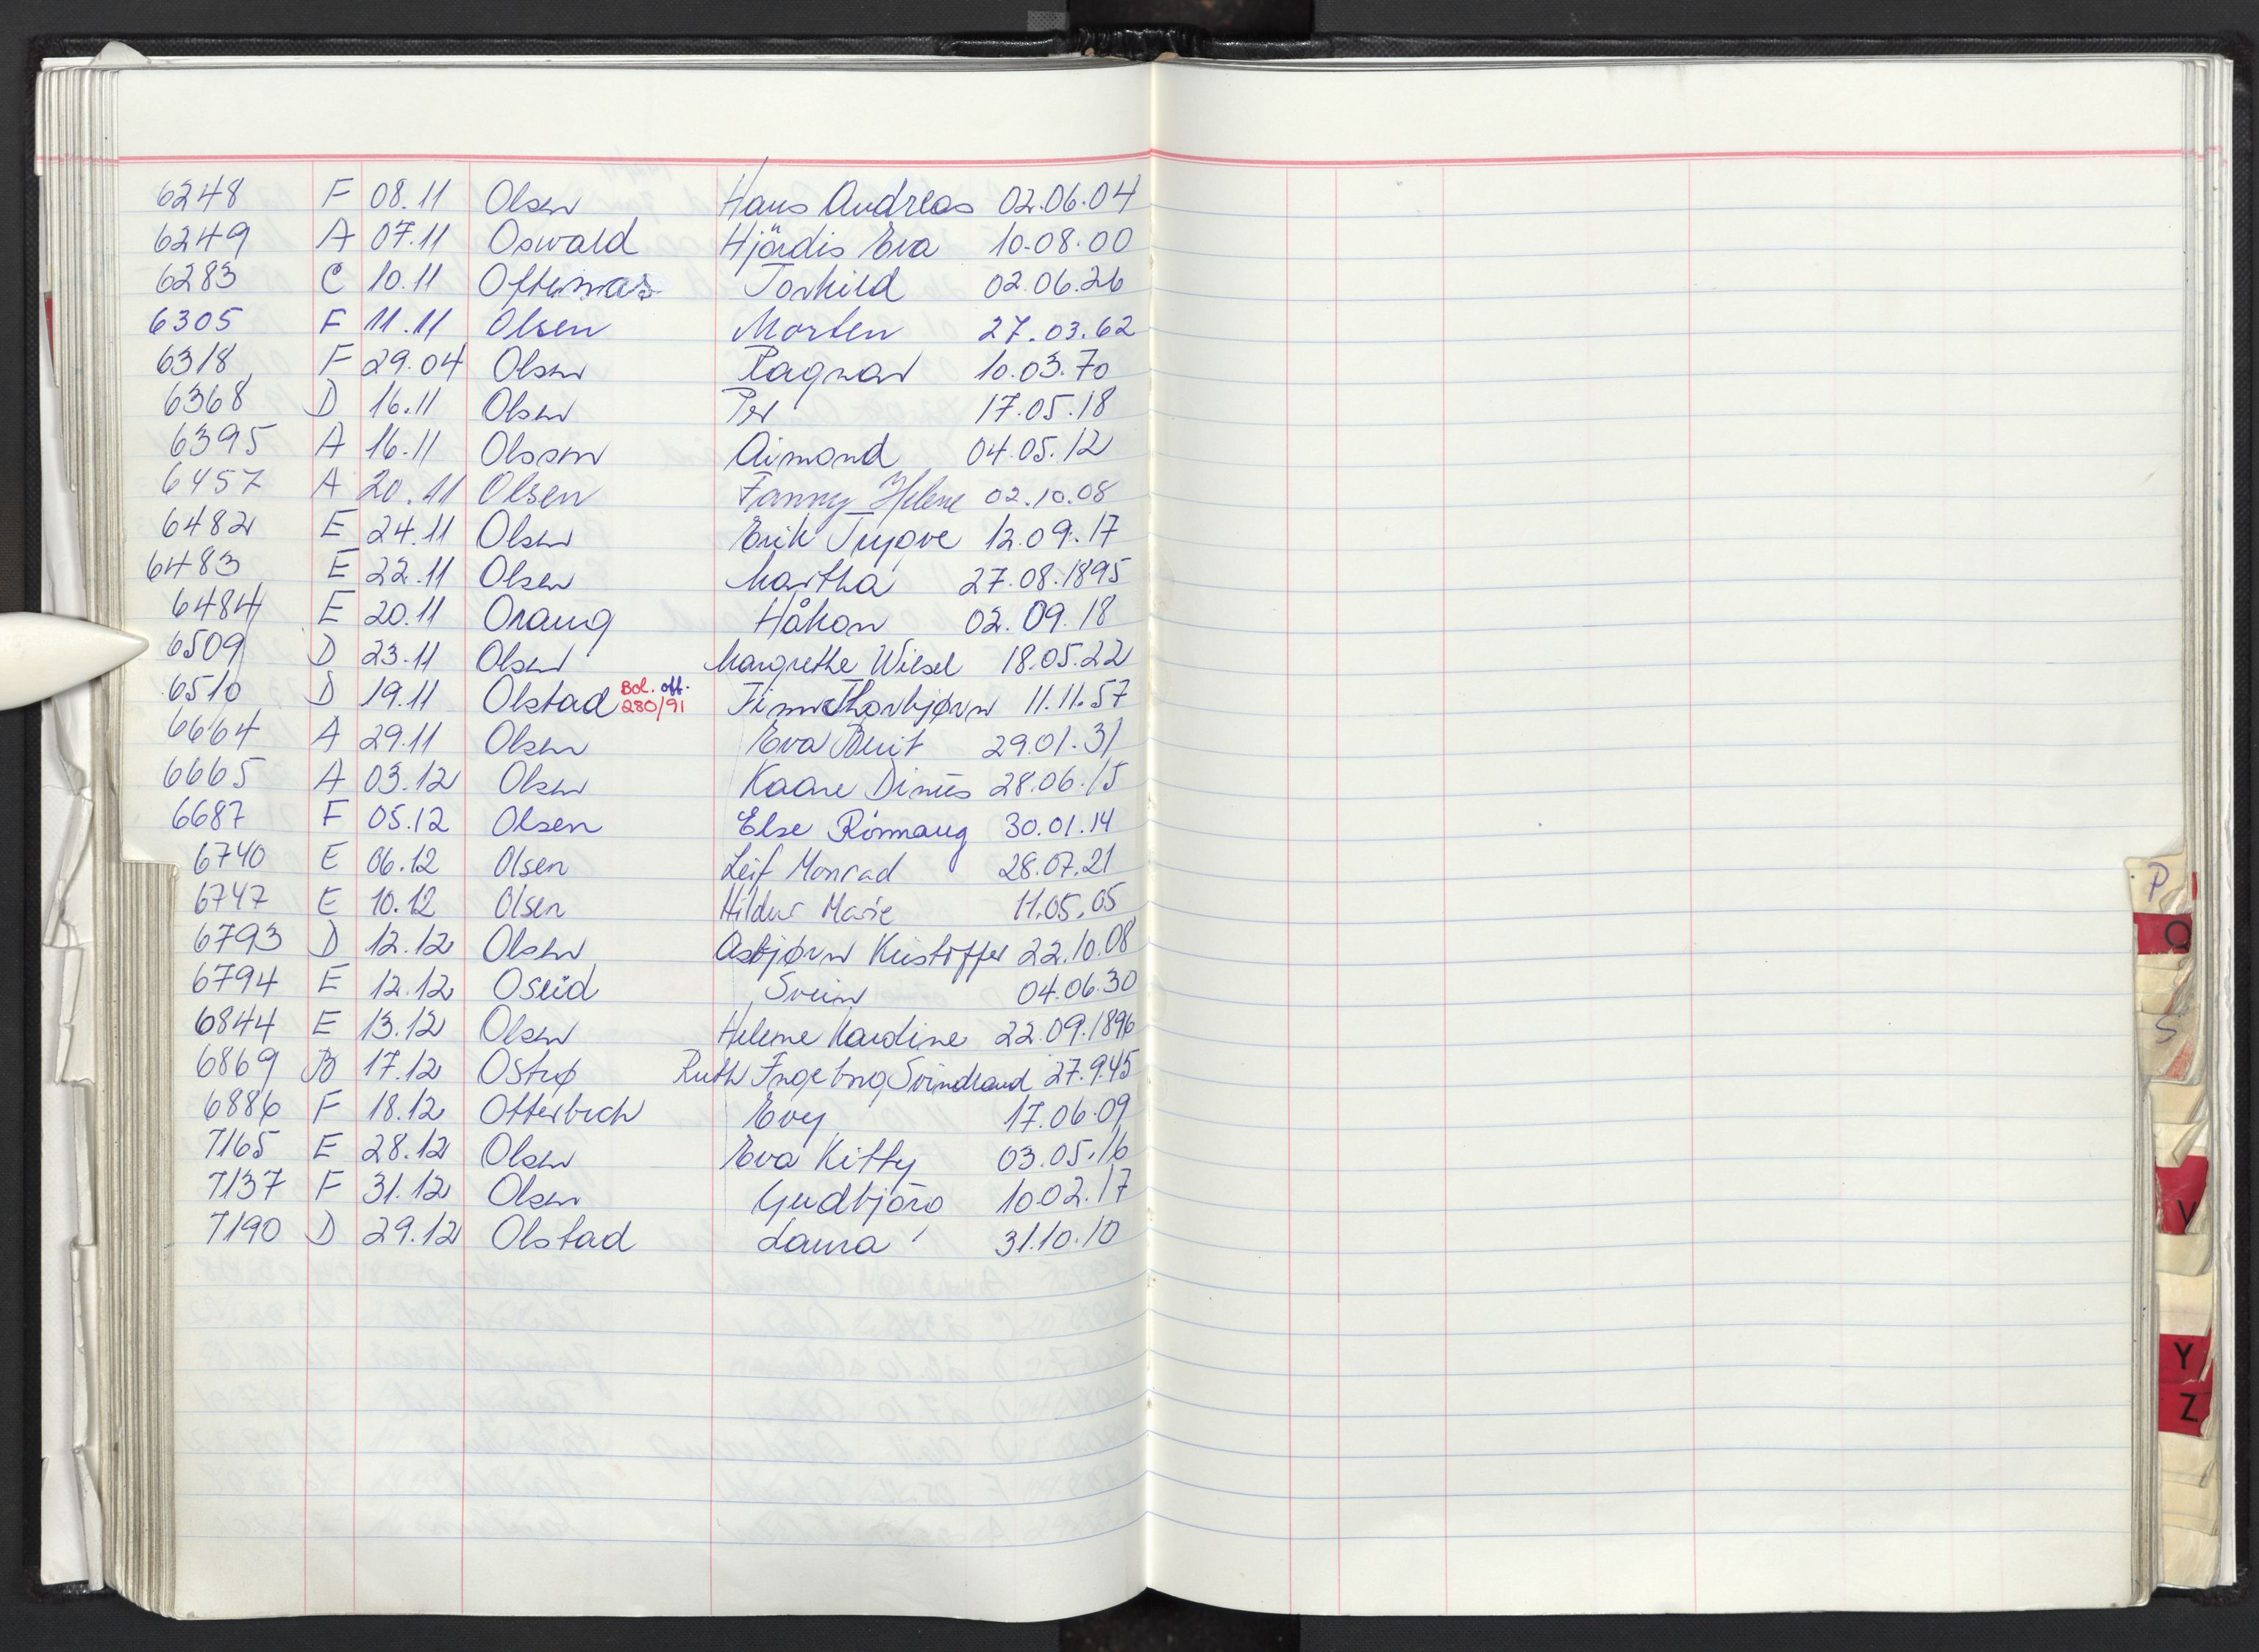 6248 F 08.11 Olsen Hans Andreas 02.06.04
6249 A 07.11 Oswald Hjördis Eva 10.08.00
6283 C 10.11 Torhild 02.06.26
6305 F 11.11 Olsen Morten 27.03.62
6318 F 29.04 Olsen Ragnar 10.03.70
6368 D 16.11 Olsen Per 17.05.18
6395 A 16.11 Olssen Aimond 04.05.12
6457 A 20.11 Olsen Fanny Helene 02.10.08
6482 E 24.11 Olsen Erik Trygve 12.09.17
6483 E 22.11 Olsen Martha 27.08.1895
6484 E 20.11 Oraug Håkon 02.09.18
6509 D 23.11 Olsen Margrethe Wiesel 18.05.22
6510 D 19.11 Olstad Bol. off. 280/91 Finn Thorbjørn 11.11.57
6664 A 29.11 Olsen Eva Berit 29.01.31
6665 A 03.12 Olsen Kaare Dinius 28.06.15
6687 F 05.12 Olsen Else Rönnaug 30.01.14
6740 E 06.12 Olsen Leif Monrad 28.07.21
6747 E 10.12 Olsen Hildur Marie 11.05.05
6793 D 12.12 Olsen Asbjørn Kristoffer 22.10.08
6794 E 12.12 Oseid Svein 04.06.30
6844 E 13.12 Olsen Helene Kardine 22.09.1896
6869 B 17.12 Ostrø Ruth Ingeborg Svindland 27.9.45
6886 F 18.12 Otterbech Evy 17.06.09
7165 E 28.12 Olsen Eva Kitty 03.05.16
7137 F 31.12 Olsen Gudbjörg 10.02.17
7190 D 29.12 Olstad Laura 31.10.10
P
S
V
Y
Z